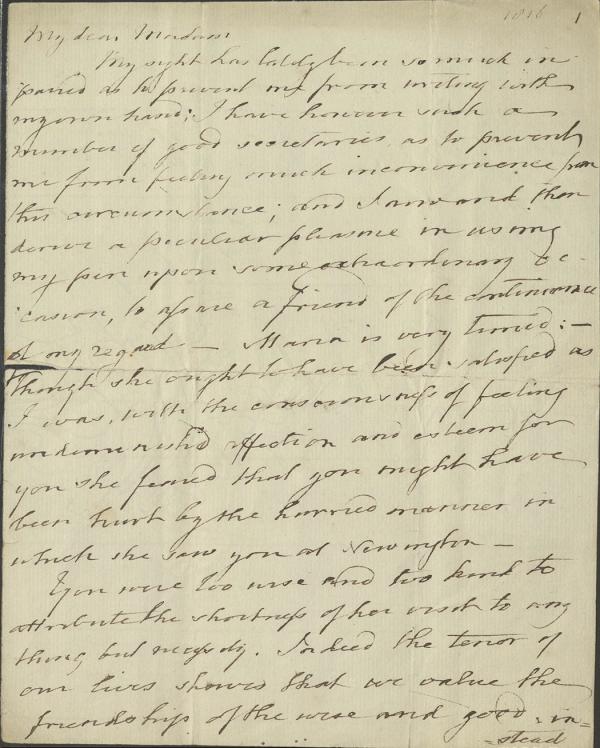 1816 1
My dear Madam
My sight has lately been so much im
paired as to prevent me from writing with
my own hand; I have however such a
number of good secretaries as to prevent
me from feeling much inconvenience from
this circumstance; and I now and then
derive a peculiar pleasure in using
my pen upon some extraordinary oc-
casion, to assure a friend of the continuance
of my regard — Maria is very timid: —
though she ought to have been satisfied as
I was, with the consciousness of feeling
undiminish'd affection and esteem for
you she feared that you might have
been hurt by the hurried manner in
which she saw you at Newington —
You were too wise and too kind to
attribute the shortness of her visit to any
thing but necessity. Indeed the tenor of
our lives shows that we value the
friendships of the wise and good in=
=stead